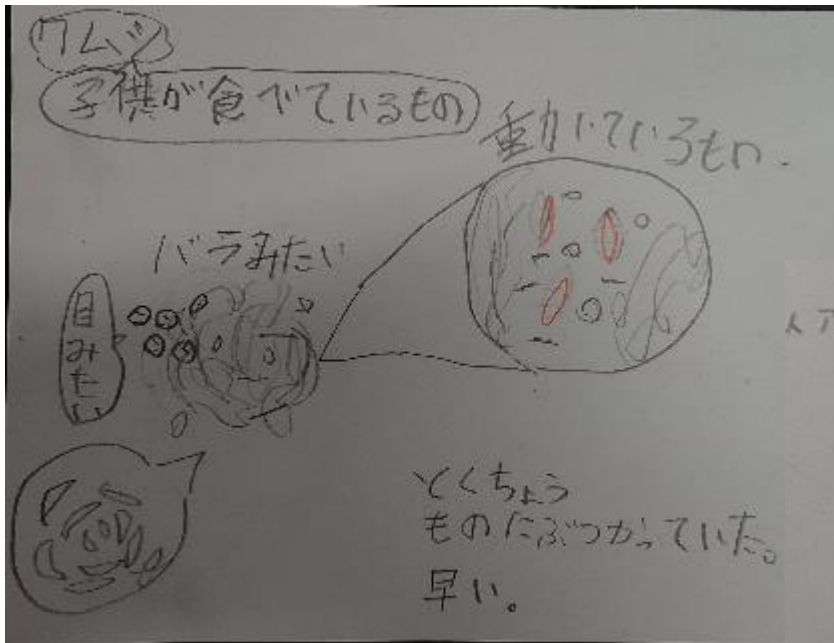 クムツ
子供が食べているもの
動いているもの.
バラみたい
目みたい
とくちょう
ものにぶつかっていた。
早い。